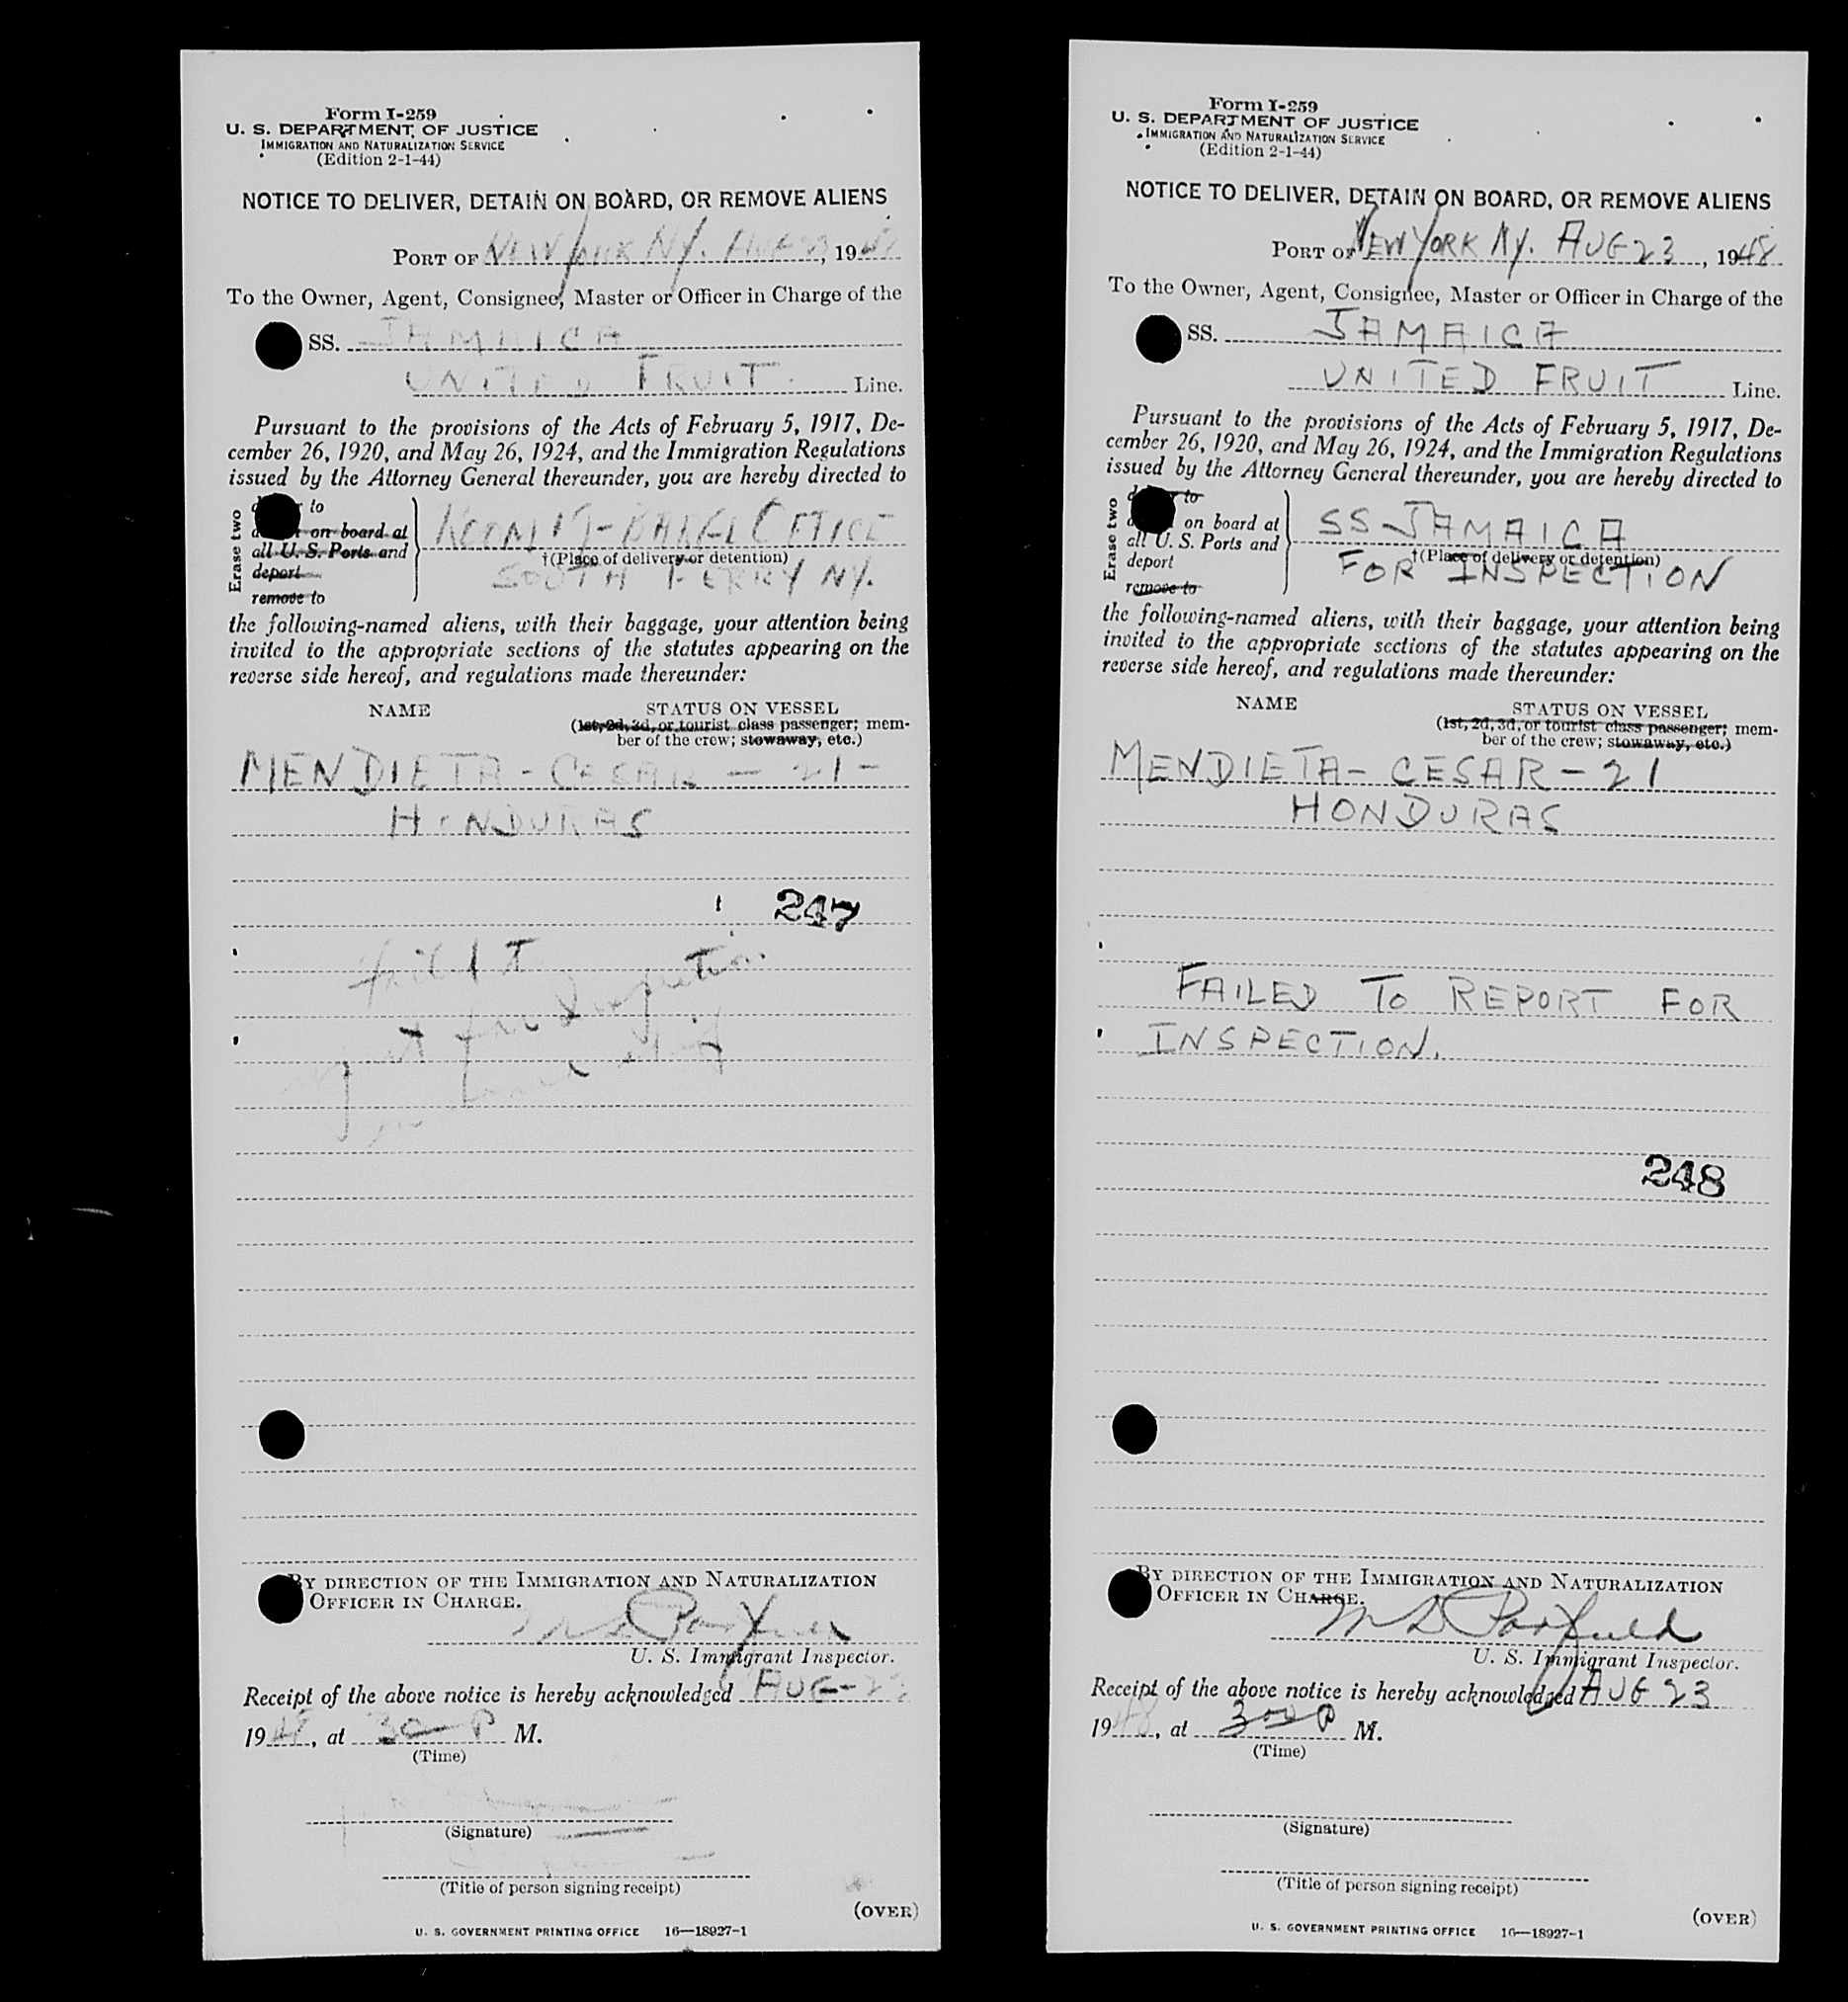 Form I-259
U. S. DEPARTMENT OF JUSTICE
IMMIGRATION AND NATURALIZATION SERVICE
(Edition 2-1-44)
NOTICE TO DELIVER, DETAIN ON BOARD, OR REMOVE ALIENS
PORT OF NEW YORK NY. AUG 23, 1948
To the Owner, Agent, Consignee, Master or Officer in Charge of the
SS. JAMAICA
UNITED FRUIT Line.
Pursuant to the provisions of the Acts of February 5, 1917, De-
cember 26, 1920, and May 26, 1924, and the Immigration Regulations
issued by the Attorney General thereunder, you are hereby directed to
Erase two
to
on board at
all U. S. Ports and
deport
remove to
ROOM 19 - BARGE OFFICE
†(Place of delivery or detention)
SOUTH FERRY NY.
the following-named aliens, with their baggage, your attention being
invited to the appropriate sections of the statutes appearing on the
reverse side hereof, and regulations made thereunder:
NAME STATUS ON VESSEL
(1st, 2d, 3d, or tourist class passenger; mem-
ber of the crew; stowaway, etc.)
MENDIETA - CESAR - 21 -
HONDURAS
247
BY DIRECTION OF THE IMMIGRATION AND NATURALIZATION
OFFICER IN CHARGE.
U. S. Immigrant Inspector.
Receipt of the above notice is hereby acknowledged AUG - 23
1948, at 300 P M.
(Time)
(Signature)
(Title of person signing receipt)
(OVER)
U. S. GOVERNMENT PRINTING OFFICE 16—18927-1
Form I-259
U. S. DEPARTMENT OF JUSTICE
IMMIGRATION AND NATURALIZATION SERVICE
(Edition 2-1-44)
NOTICE TO DELIVER, DETAIN ON BOARD, OR REMOVE ALIENS
PORT OF NEW YORK NY. AUG 23, 1948
To the Owner, Agent, Consignee, Master or Officer in Charge of the
SS. JAMAICA
UNITED FRUIT Line.
Pursuant to the provisions of the Acts of February 5, 1917, De-
cember 26, 1920, and May 26, 1924, and the Immigration Regulations
issued by the Attorney General thereunder, you are hereby directed to
Erase two
to
on board at
all U. S. Ports and
deport
remove to
SS JAMAICA
†(Place of delivery or detention)
FOR INSPECTION
the following-named aliens, with their baggage, your attention being
invited to the appropriate sections of the statutes appearing on the
reverse side hereof, and regulations made thereunder:
NAME STATUS ON VESSEL
(1st, 2d, 3d, or tourist class passenger; mem-
ber of the crew; stowaway, etc.)
MENDIETA - CESAR - 21
HONDURAS
FAILED TO REPORT FOR
INSPECTION.
248
BY DIRECTION OF THE IMMIGRATION AND NATURALIZATION
OFFICER IN CHARGE.
U. S. Immigrant Inspector.
Receipt of the above notice is hereby acknowledged AUG 23
1948, at 300 P M.
(Time)
(Signature)
(Title of person signing receipt)
(OVER)
U. S. GOVERNMENT PRINTING OFFICE 16—18927-1